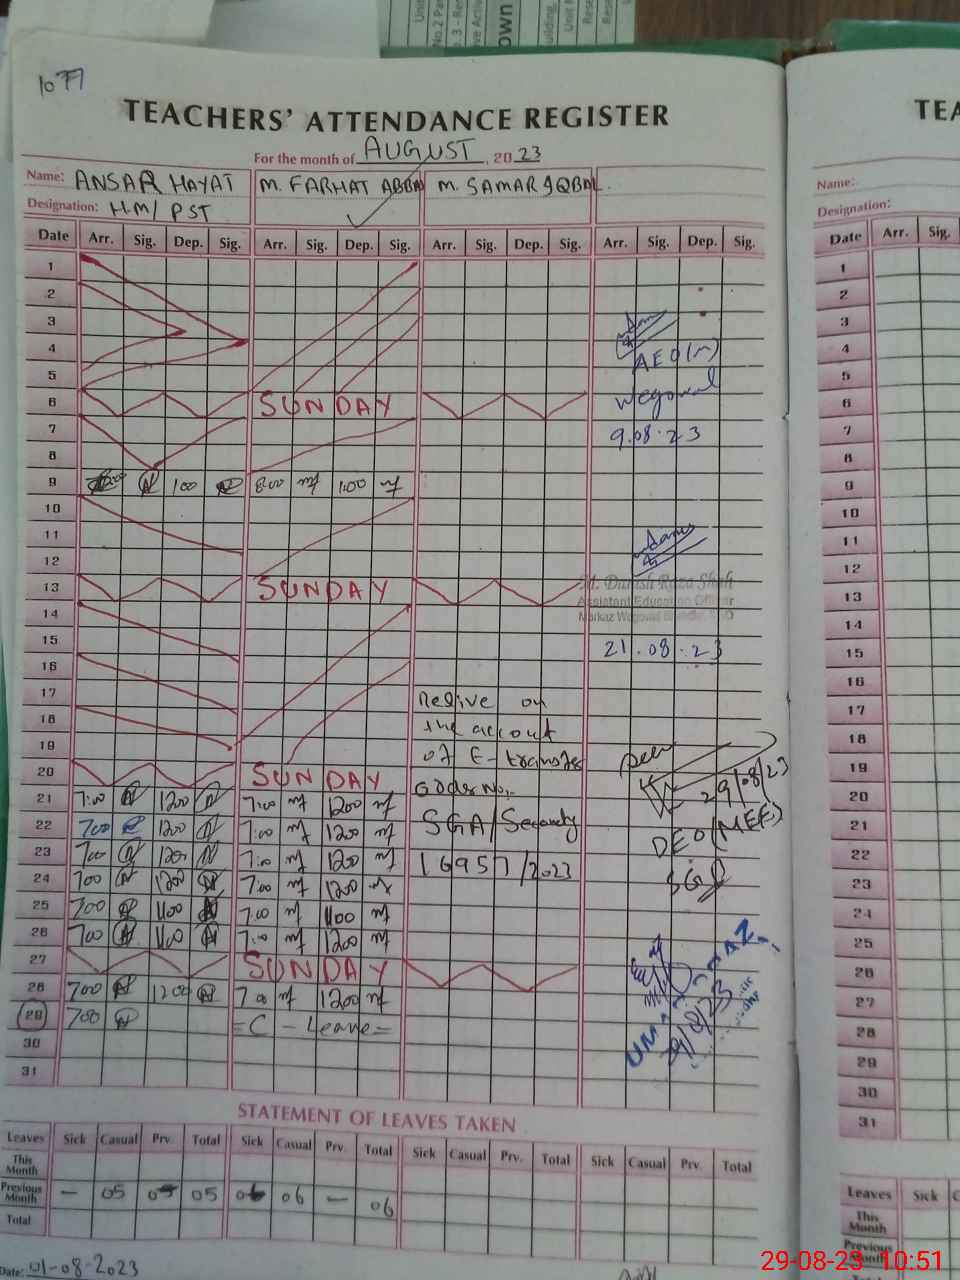 1077
TEACHERS' ATTENDANCE REGISTER
For the month of AUGUST, 2023
Name: ANSAR HAYAT M. FARHAT ABBA M. SAMAR IQBAL
Designation: H.M/ PST
Date Arr. Sig. Dep. Sig. Arr. Sig. Dep. Sig. Arr. Sig. Dep. Sig. Arr. Sig. Dep. Sig.
1
2
3
4
AEO(M)
5
6 SUNDAY
7 9.08.23
8
9 800 100 800 mf 1:00 mf
10
11
12
13 SUNDAY
Assistant Education Officer
14
15 21.08.23
16
17 Relive on
18 the account
19 of E-transfer
20 SUNDAY Order No,-
29/08/23
21 7:00 1200 7:00 mf 1200 mf
SGA/Security
22 700 1200 7:00 mf 1200 mf
DEO(MEE)
23 700 1200 7:00 mf 1200 mf
16957/2023
24 700 1200 7:00 mf 1200 mf
SGD
25 700 1100 7:00 mf 1100 mf
26 700 1100 7:00 mf 1200 mf
27 SUNDAY
28 700 1200 700 mf 1200 mf
29 700 =C - Leave=
30
31
STATEMENT OF LEAVES TAKEN
Leaves Sick Casual Prv. Total Sick Casual Prv. Total Sick Casual Prv. Total Sick Casual Prv. Total
This Month
Previous Month — 05 05 06 — 06
Total
Date: 01-08-2023
TEA
Name:
Designation:
Date Arr. Sig.
1
2
3
4
5
6
7
8
9
10
11
12
13
14
15
16
17
18
19
20
21
22
23
24
25
26
27
28
29
30
31
Leaves Sick
This Month
Previous Month
29-08-23 10:51